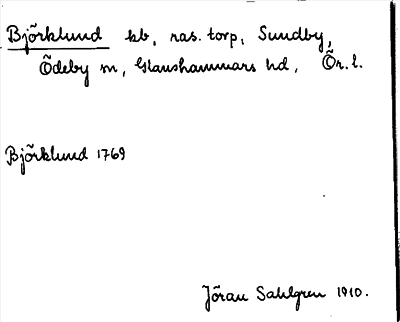 Björklund kb, ras. torp, Sundby,
Ödeby sn, Glanshammars hd, Ör. l.
Björklund 1769
Jöran Sahlgren 1910.